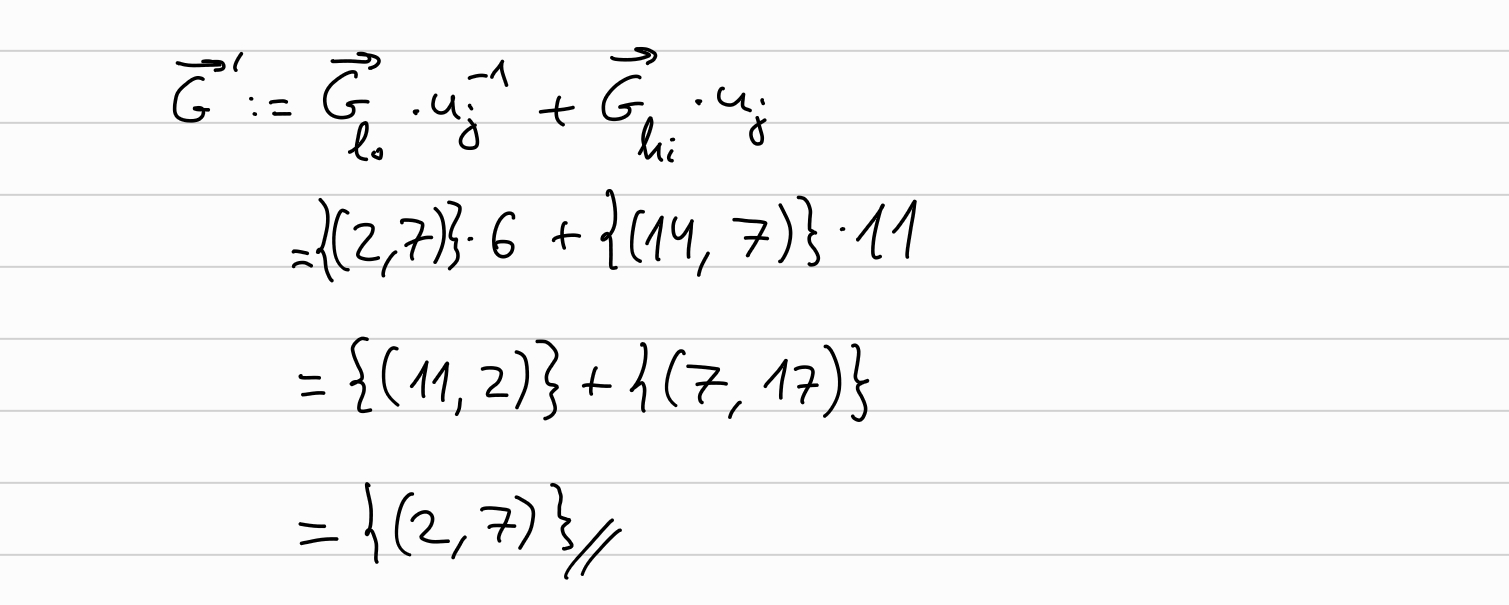 $\vec{G}' := \vec{G}_{lo} \cdot u_j^{-1} + \vec{G}_{hi} \cdot u_j$
$= \{(2,7)\} \cdot 6 + \{(14,7)\} \cdot 11$
$= \{(11,2)\} + \{(7,17)\}$
$= \{(2,7)\}//$